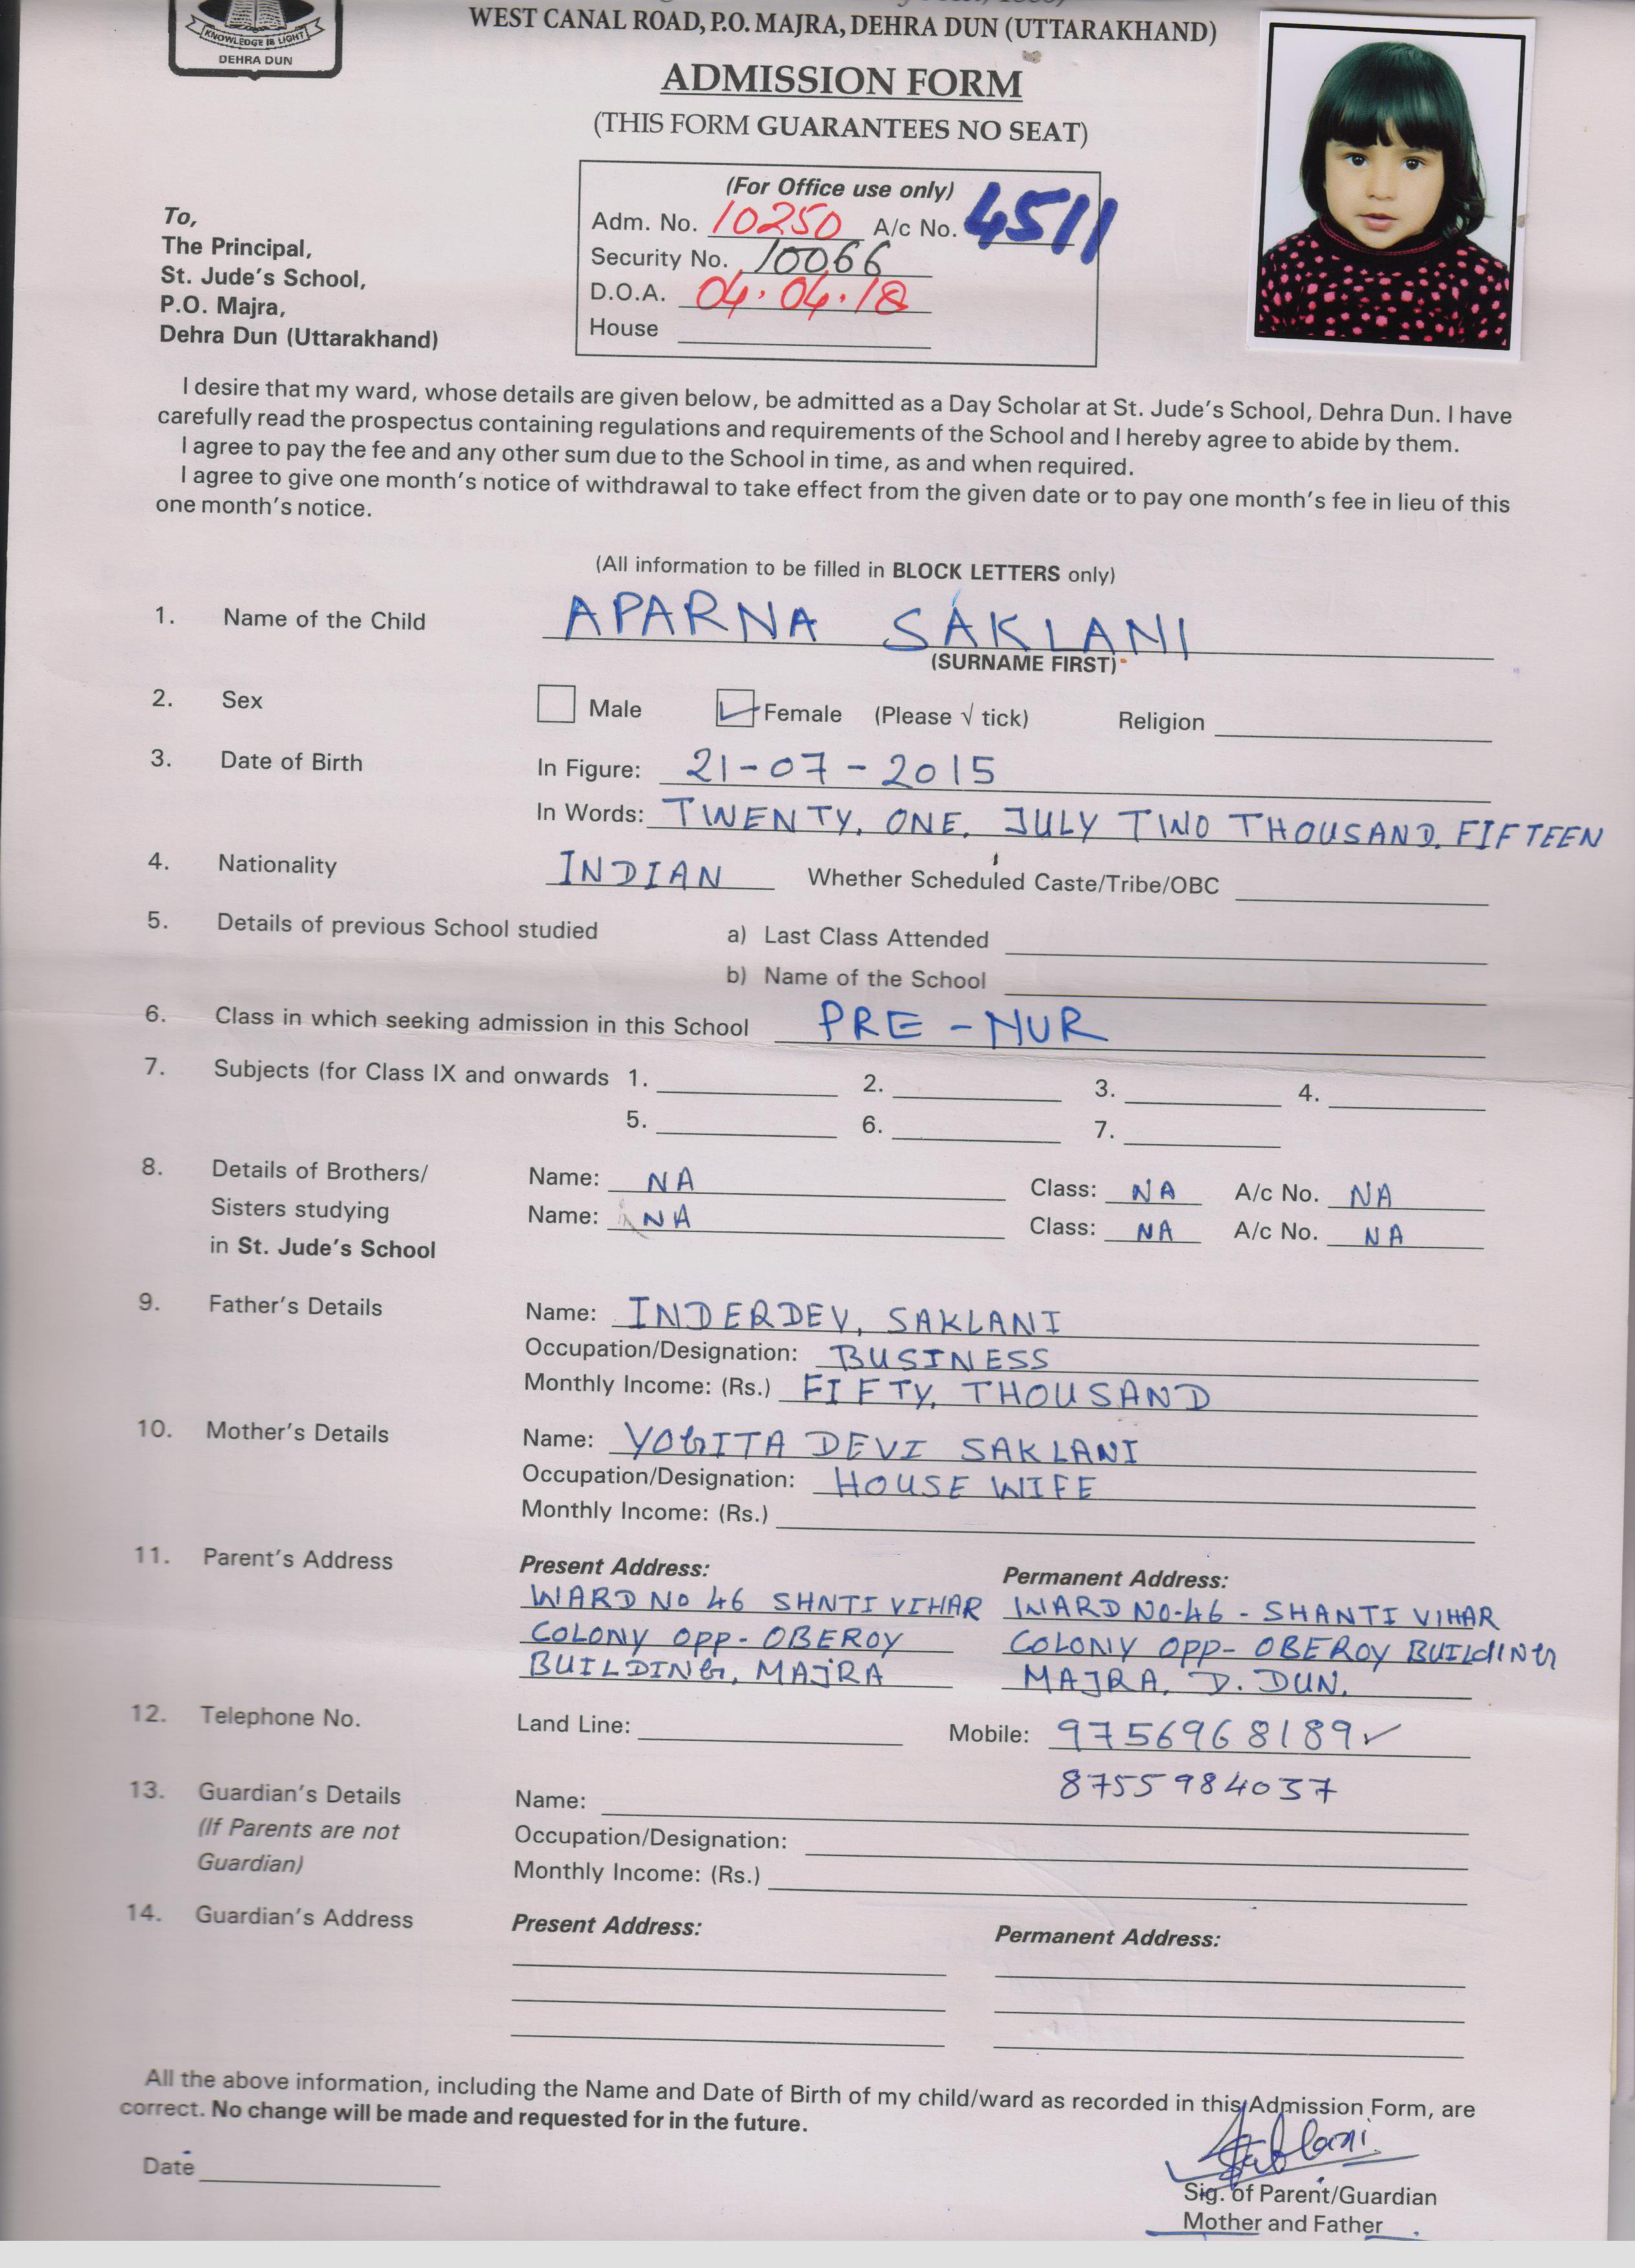 KNOWLEDGE IS LIGHT
DEHRA DUN
WEST CANAL ROAD, P.O. MAJRA, DEHRA DUN (UTTARAKHAND)
ADMISSION FORM
(THIS FORM GUARANTEES NO SEAT)
(For Office use only)
Adm. No. 10250 A/c No. 4511
Security No. 10066
D.O.A. 04.04.18
House
To,
The Principal,
St. Jude's School,
P.O. Majra,
Dehra Dun (Uttarakhand)
I desire that my ward, whose details are given below, be admitted as a Day Scholar at St. Jude's School, Dehra Dun. I have
carefully read the prospectus containing regulations and requirements of the School and I hereby agree to abide by them.
I agree to pay the fee and any other sum due to the School in time, as and when required.
I agree to give one month's notice of withdrawal to take effect from the given date or to pay one month's fee in lieu of this
one month's notice.
(All information to be filled in BLOCK LETTERS only)
1. Name of the Child APARNA SAKLANI
(SURNAME FIRST)
2. Sex Male Female (Please √ tick) Religion
3. Date of Birth In Figure: 21-07-2015
In Words: TWENTY, ONE, JULY TWO THOUSAND, FIFTEEN
4. Nationality INDIAN Whether Scheduled Caste/Tribe/OBC
5. Details of previous School studied a) Last Class Attended
b) Name of the School
6. Class in which seeking admission in this School PRE-NUR
7. Subjects (for Class IX and onwards 1. 2. 3. 4.
5. 6. 7.
8. Details of Brothers/ Name: NA Class: NA A/c No. NA
Sisters studying Name: NA Class: NA A/c No. NA
in St. Jude's School
9. Father's Details Name: INDERDEV, SAKLANI
Occupation/Designation: BUSINESS
Monthly Income: (Rs.) FIFTY, THOUSAND
10. Mother's Details Name: YOGITA DEVI SAKLANI
Occupation/Designation: HOUSE WIFE
Monthly Income: (Rs.)
11. Parent's Address Present Address: Permanent Address:
WARD NO 46 SHNTI VIHAR WARD NO-46 - SHANTI VIHAR
COLONY OPP- OBEROY COLONY OPP- OBEROY BUILdING
BUILDING, MAJRA MAJRA, D. DUN.
12. Telephone No. Land Line: Mobile: 9756968189 ✓
8755984037
13. Guardian's Details Name:
(If Parents are not Occupation/Designation:
Guardian) Monthly Income: (Rs.)
14. Guardian's Address Present Address: Permanent Address:
All the above information, including the Name and Date of Birth of my child/ward as recorded in this Admission Form, are
correct. No change will be made and requested for in the future.
Saklani
Date
Sig. of Parent/Guardian
Mother and Father